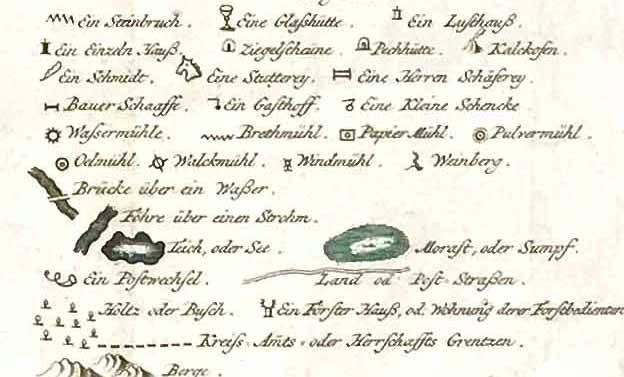 Ein Steinbruch. Eine Glaßhütte. Ein Lusthauß.
Ein Einzeln Hauß. Ziegelscheune. Pechhütte. Kalckofen.
Ein Schmidt. Eine Stutterey. Eine Herren Schäferey.
Bauer Schaaffe. Ein Gasthoff. Eine Kleine Schencke
Waßermühle. Brethmühl. Papier Mühl. Pulvermühl.
Oelmühl. Walckmühl. Windmühl. Weinberg.
Brücke über ein Waßer.
Föhre über einen Strohm.
Teich, oder See. Morast, oder Sumpf.
Ein Postwechsel. Land od. Post-Straßen.
Holtz oder Busch. Ein Förster Hauß, od. Wohnung derer Forstbedienten
Kreiss-Amts-oder Herrschaffts Grentzen.
Berge.